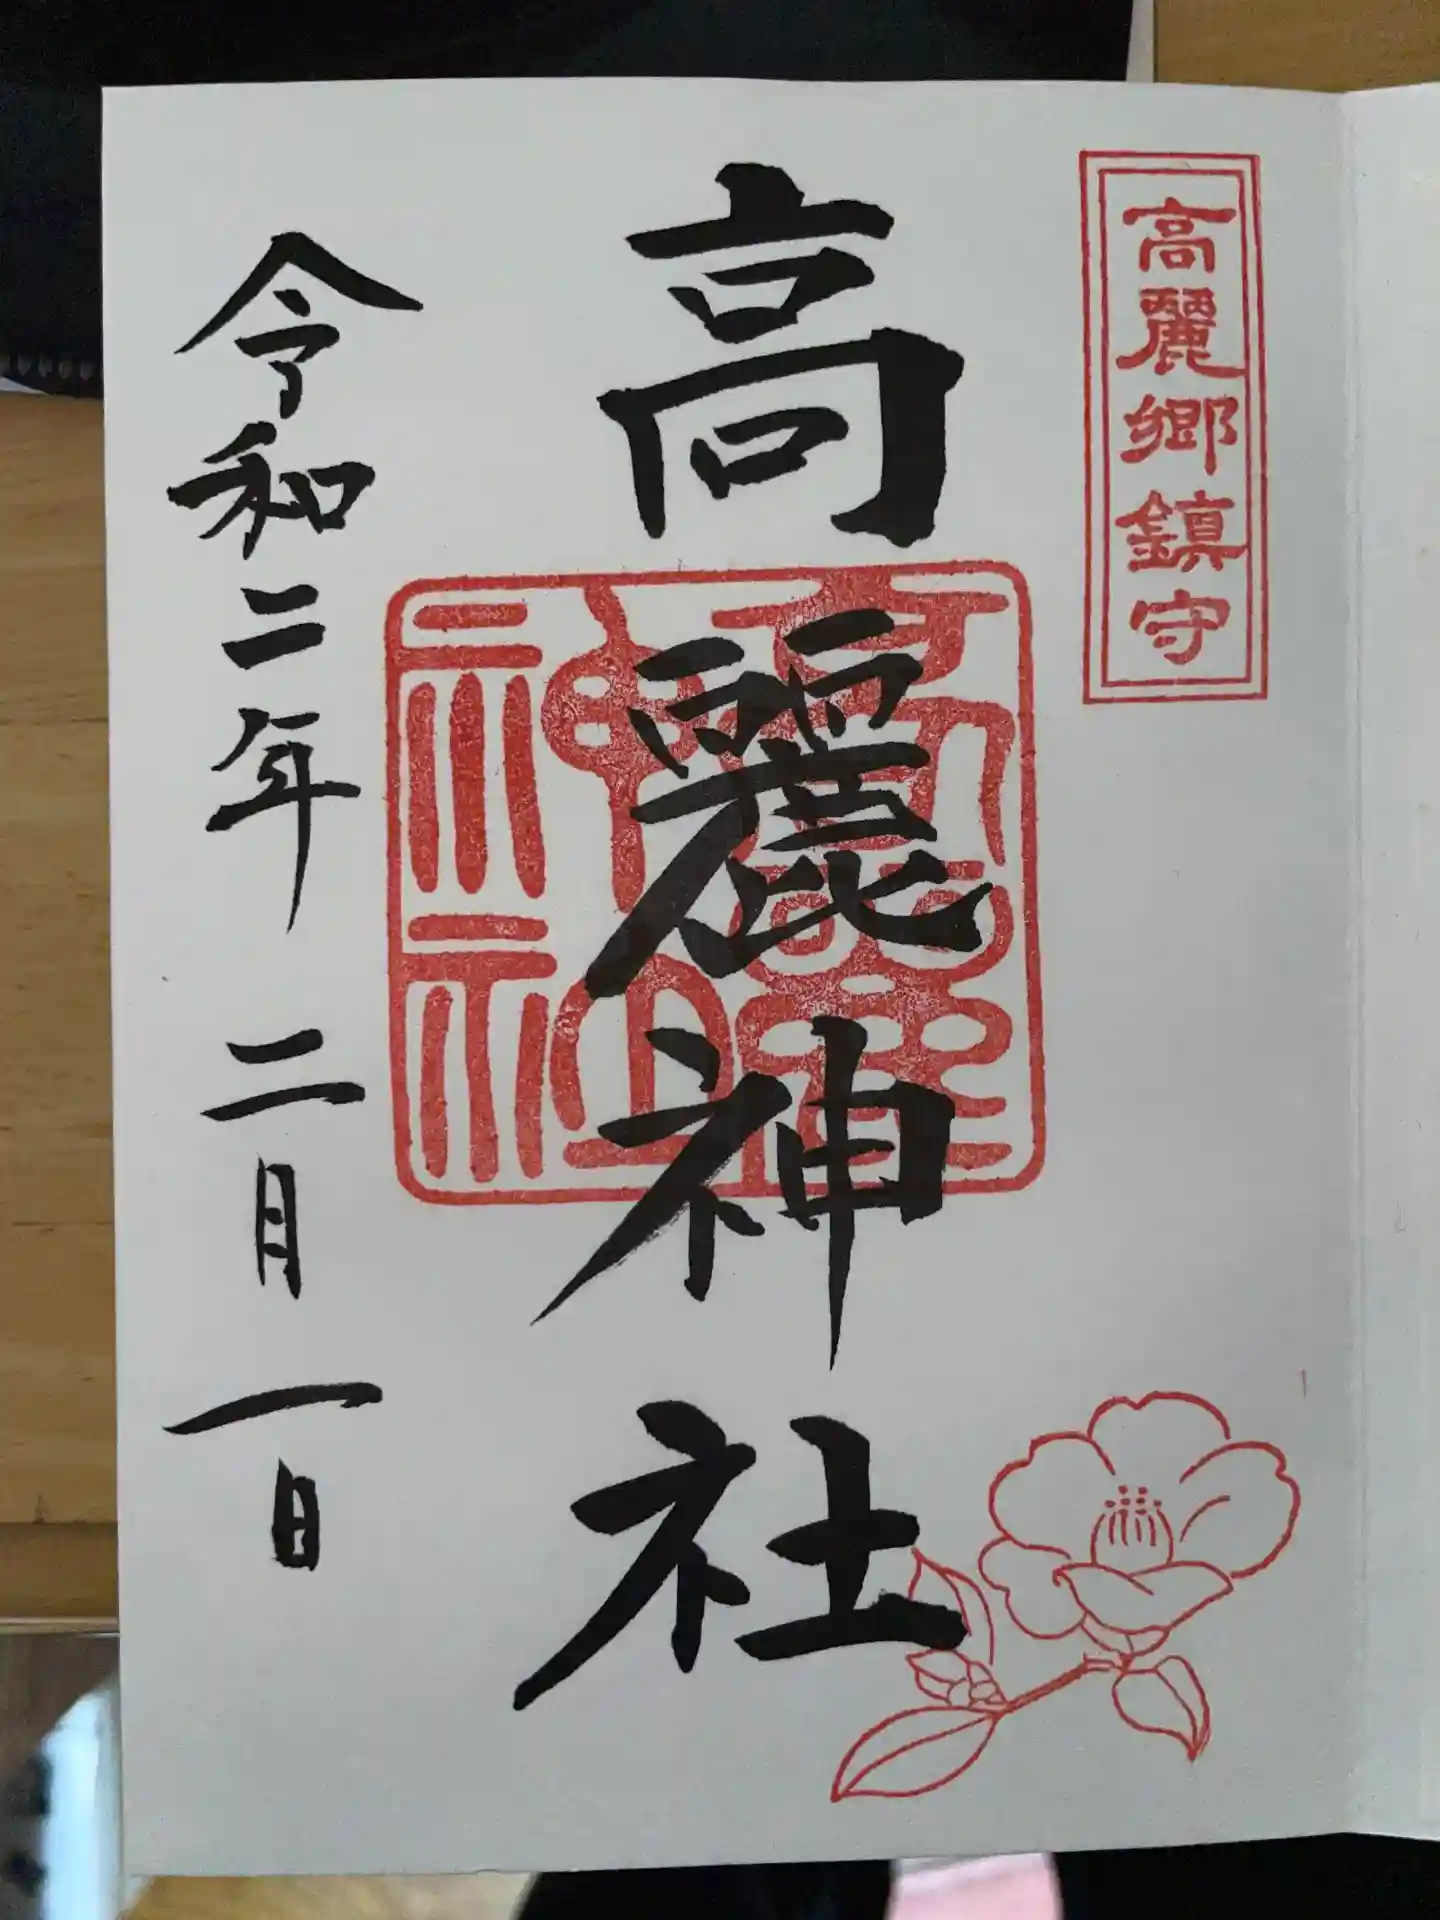 高麗郷鎮守
高麗神社
高麗神社
令和二年二月一日